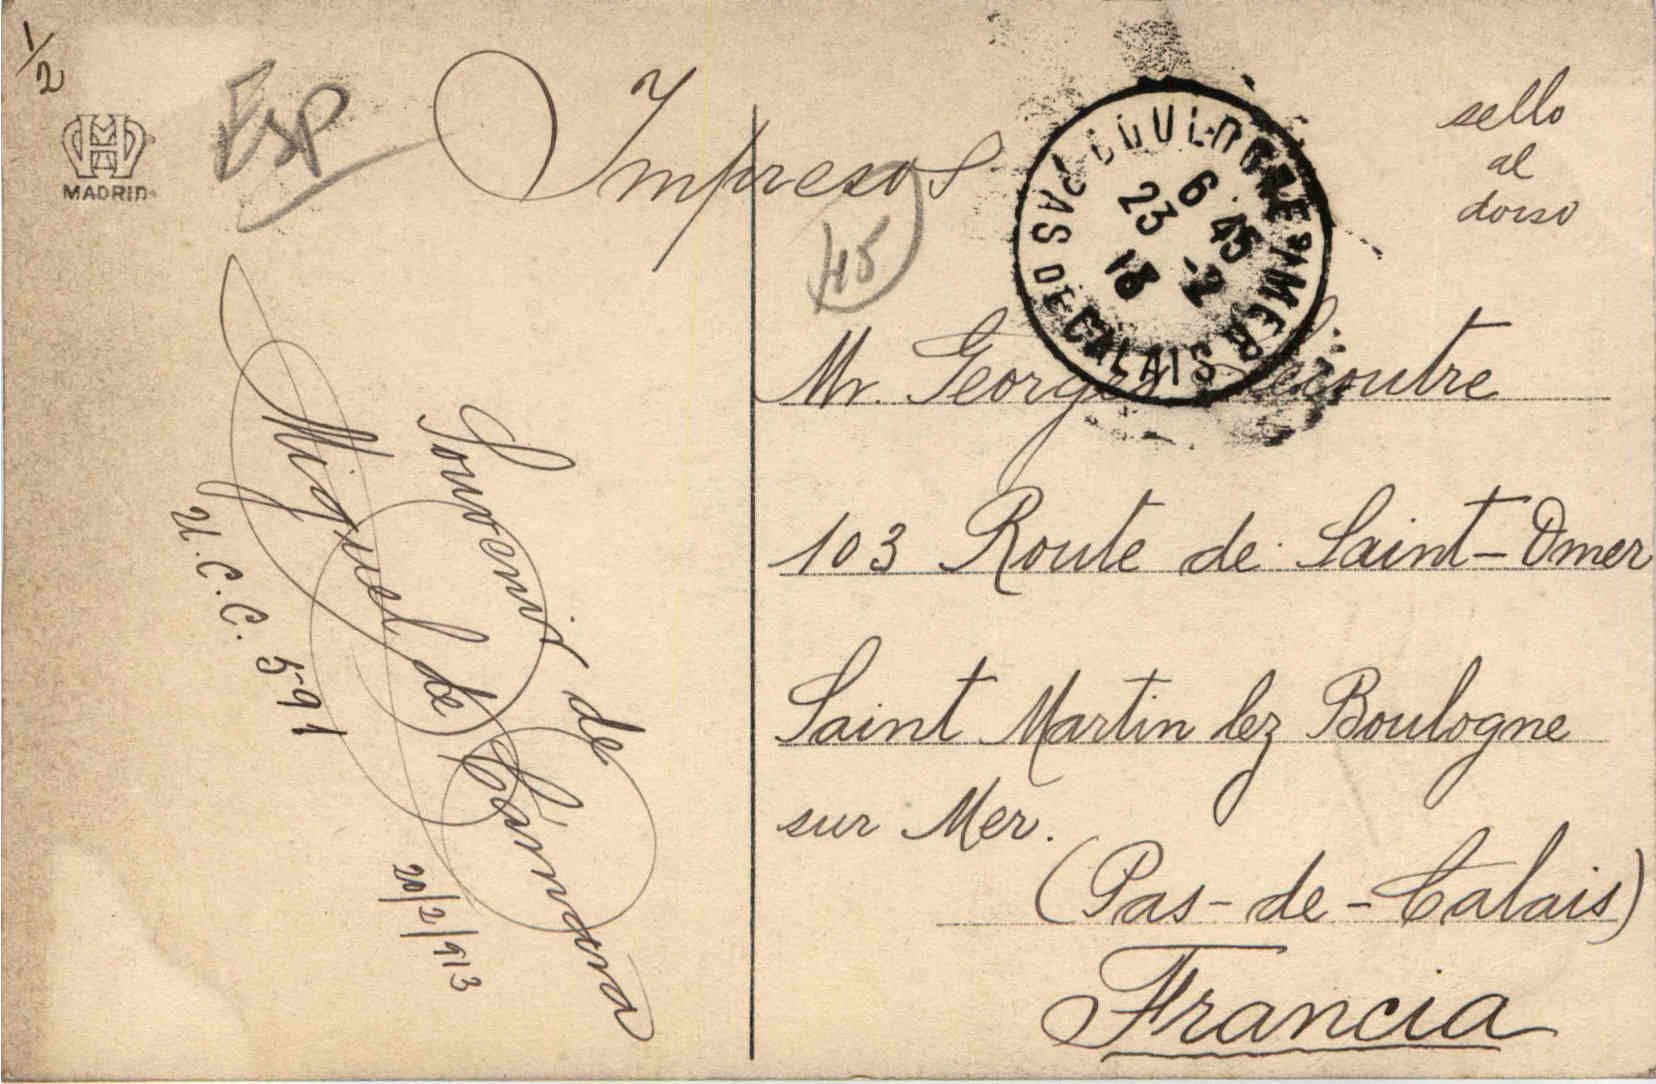 1/2
MADRID
Esp
Impresos
sello
al
dorso
45
BOULOGNE S MER
PAS DE CALAIS
6 45
23 -2
13
Mr. Georges Lecoutre
103 Route de Saint-Omer
Saint Martin lez Boulogne
sur Mer.
(Pas-de-Calais)
Francia
Souvenir de
Miguel de Cámara
U.C.C. 591
20/2/913